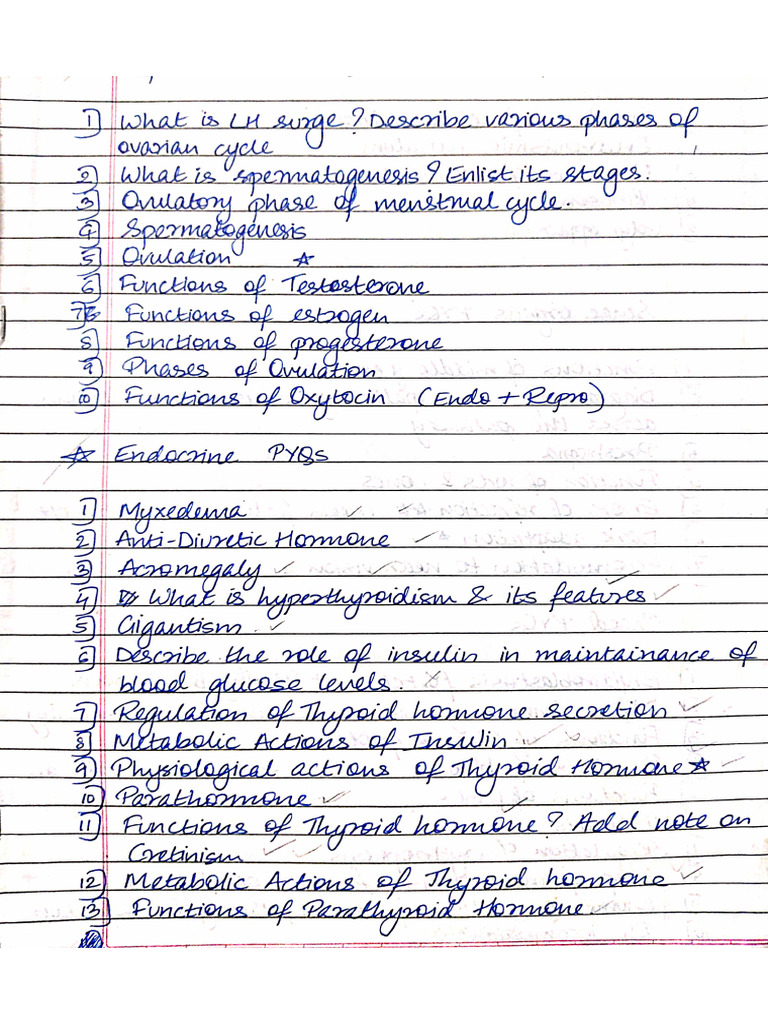 1) What is LH surge? Describe various phases of
ovarian cycle
2) What is spermatogenesis? Enlist its stages.
3) Ovulatory phase of menstrual cycle.
4) Spermatogenesis
5) Ovulation ☆
6) Functions of Testosterone
7) Functions of estrogen
8) Functions of progesterone
9) Phases of Ovulation
10) Functions of Oxytocin (Endo + Repro)
☆ Endocrine PYQs
1) Myxedema ✓
2) Anti-Diuretic Hormone ✓
3) Acromegaly ✓ ✓
4) What is hyperthyroidism & its features ✓
5) Gigantism. ✓
6) Describe the role of insulin in maintainance of
blood glucose levels. ✓
7) Regulation of Thyroid hormone secretion ✓
8) Metabolic Actions of Insulin ✓ ✓
9) Physiological actions of Thyroid Hormone ☆ ✓
10) Parathormone ✓
11) Functions of Thyroid hormone? Add note on
Cretinism ✓ ✓
12) Metabolic Actions of Thyroid hormone ✓
13) Functions of Parathyroid Hormone